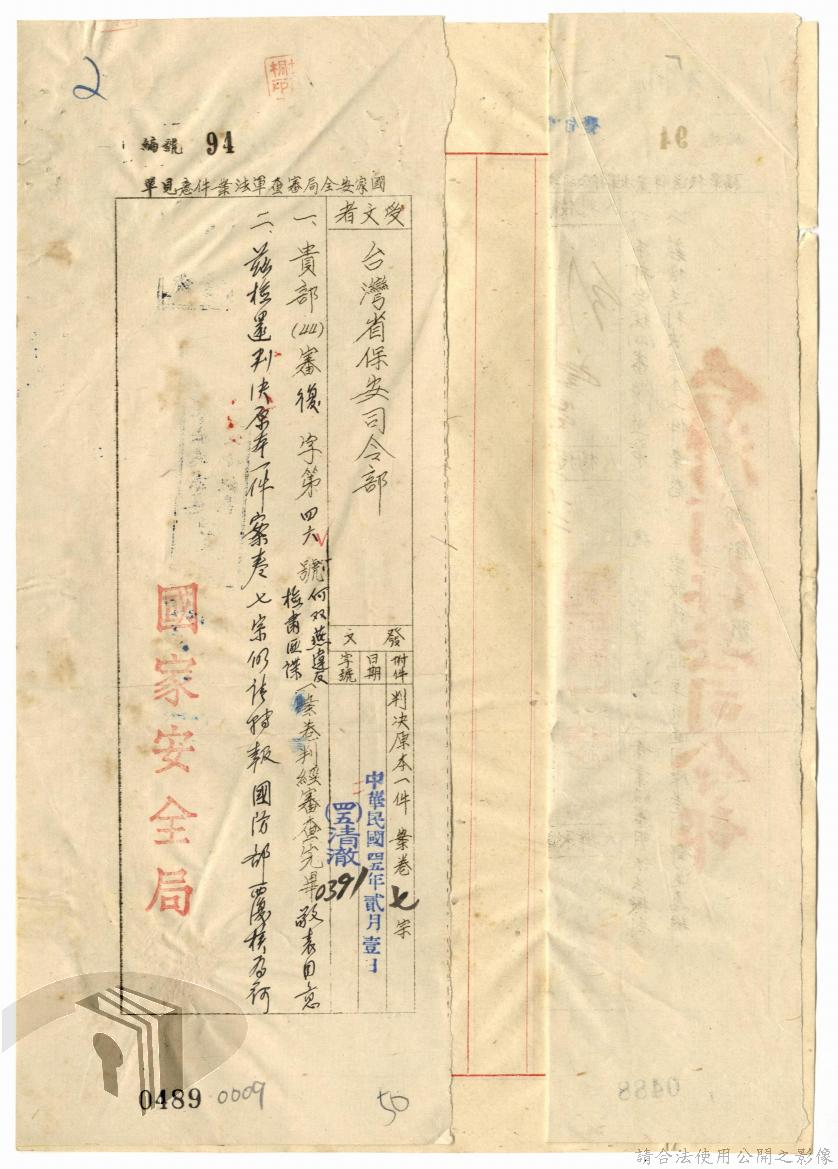 2
編號 94
國家安全局審查軍法案件意見單
受文者
台灣省保安司令部
發文
附件
判決原本一件 案卷七宗
日期
中華民國四五年貳月壹日
字號
(四五)清澈 0391
一、貴部(44)審復字第四六號何双燕違反檢肅匪諜一案卷判經審查完畢敬表同意
二、茲檢還判決原本一件案卷七宗仍請轉報國防部覆核為荷
國家安全局
0489 0009
50
0488
請合法使用公開之影像